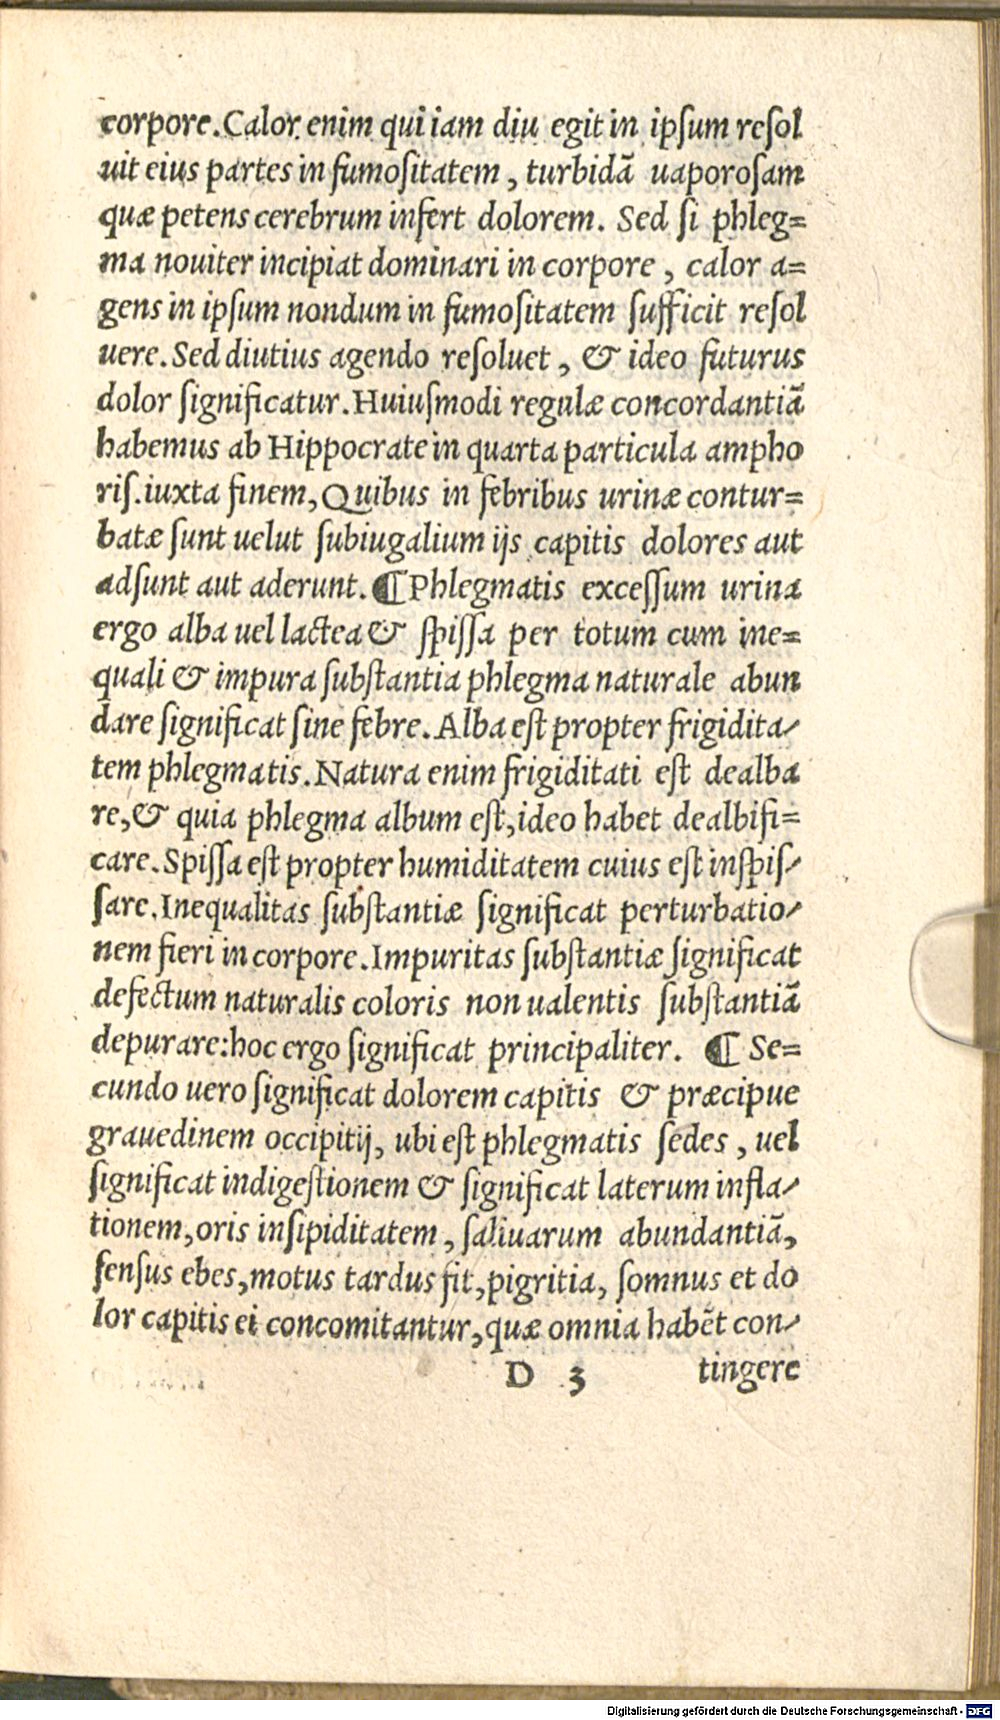 corpore. Calor enim qui iam diu egit in ipsum reſol
uit eius partes in fumoſitatem, turbidã uaporoſam
quæ petens cerebrum infert dolorem. Sed ſi phleg=
ma nouiter incipiat dominari in corpore, calor a=
gens in ipſum nondum in fumoſitatem ſufficit reſol
uere. Sed diutius agendo reſoluet, & ideo futurus
dolor ſignificatur. Huiuſmodi regulæ concordantiã
habemus ab Hippocrate in quarta particula ampho
riſ. iuxta finem, Quibus in febribus urinæ contur=
batæ ſunt uelut ſubiugalium ijs capitis dolores aut
adſunt aut aderunt. ¶ Phlegmatis exceſſum urina
ergo alba uel lactea & ſpiſſa per totum cum ine=
quali & impura ſubſtantia phlegma naturale abun
dare ſignificat ſine febre. Alba eſt propter frigidita-
tem phlegmatis. Natura enim frigiditati eſt dealba
re, & quia phlegma album eſt, ideo habet dealbifi=
care. Spiſſa eſt propter humiditatem cuius eſt inſpiſ-
ſare. Inequalitas ſubſtantiæ ſignificat perturbatio-
nem fieri in corpore. Impuritas ſubſtantiæ ſignificat
defectum naturalis coloris non ualentis ſubſtantiã
depurare: hoc ergo ſignificat principaliter. ¶ Se=
cundo uero ſignificat dolorem capitis & præcipue
grauedinem occipitij, ubi eſt phlegmatis ſedes, uel
ſignificat indigeſtionem & ſignificat laterum infla-
tionem, oris inſipiditatem, ſaliuarum abundantiã,
ſenſus ebes, motus tardus fit, pigritia, ſomnus et do
lor capitis ei concomitantur, quæ omnia habẽt con-
D 3 tingere
Digitalisierung gefördert durch die Deutsche Forschungsgemeinschaft - DFG